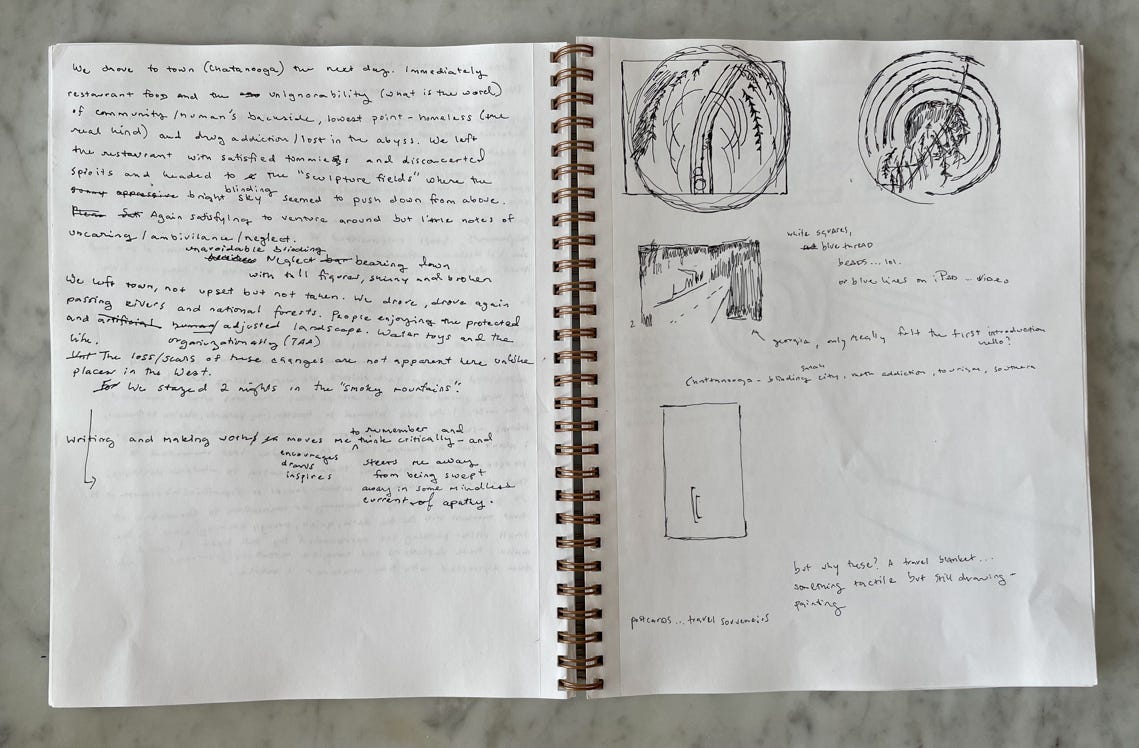 We drove to town (Chatanooga) the next day. Immediately
restaurant food and the unignorability (what is the word)
of community/human's backside, lowest point - homeless (the
real kind) and drug addiction/lost in the abyss. We left
the restaurant with satisfied tommies and disconcerted
spirits and headed to the "sculpture fields" where the
blinding
sunny oppressive bright sky seemed to push down from above.
Again satisfying to venture around but little notes of
uncaring/ambivilance/neglect.
unavoidable blinding
Neglect bearing down
with tall figures, skinny and broken
We left town, not upset but not taken. We drove, drove again
passing rivers and national forests. People enjoying the protected
and artificial human adjusted landscape. Water toys and the
like. organizationally (TAA)
The loss/scars of these changes are not apparent here unlike
places in the West.
For We stayed 2 nights in the "smoky mountains".
to remember and
Writing and making work moves me think critically - and
encourages
draws
inspires
steers me away
from being swept
away in some mindless
current of apathy.
white squares,
blue thread
beads... lol.
or blue lines on iPad... video
2
georgia, only really felt the first introduction
hello?
small
Chattanooga - blinding city, meth addiction, tourism, southern
but why these? A travel blanket...
something tactile but still drawing -
painting
postcards... travel souvenirs